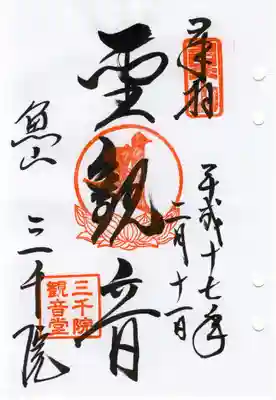 奉拝
平成十七年
二月十一日
聖観音
魚山 三千院
三千院
観音堂